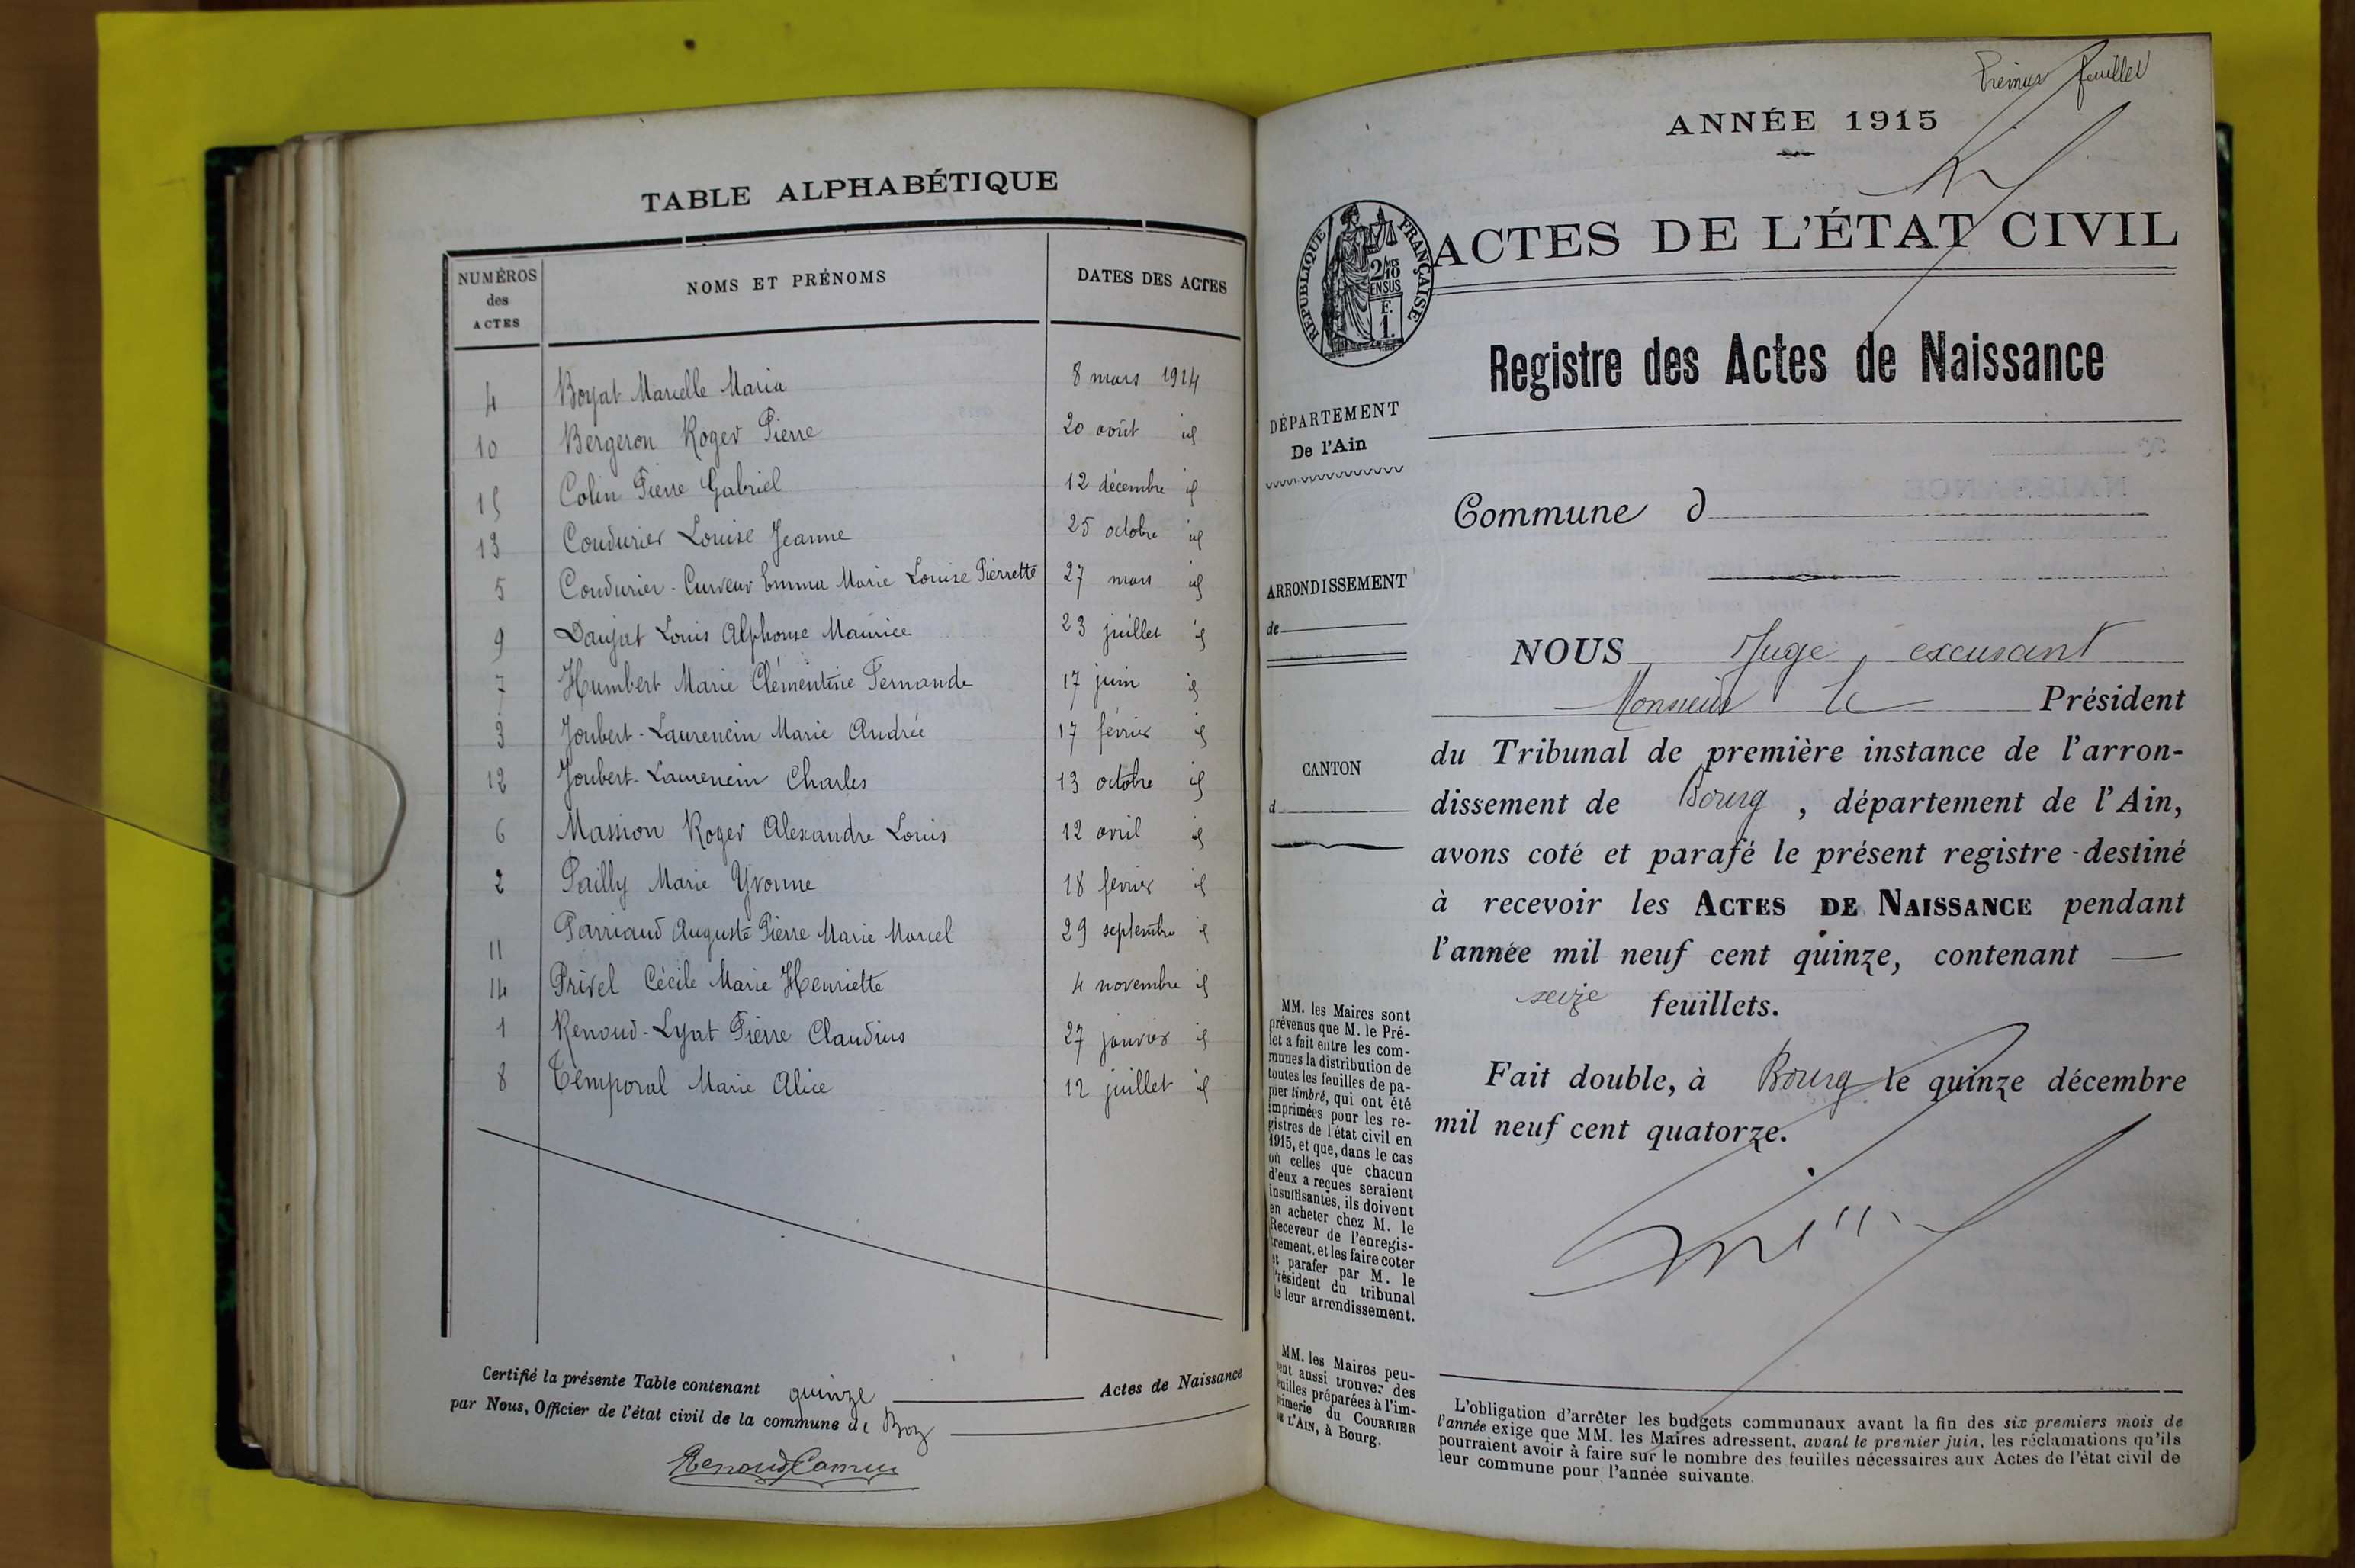 TABLE ALPHABÉTIQUE
NUMÉROS des ACTES NOMS ET PRÉNOMS DATES DES ACTES
4 Boyat Marcelle Maria 8 mars 1914
10 Bergeron Roger Pierre 20 août id
15 Colin Pierre Gabriel 12 décembre id
13 Coudurier Louise Jeanne 25 octobre id
5 Coudurier-Curveur Emma Marie Louise Pierrette 27 mars id
9 Daujat Louis Alphonse Maurice 23 juillet id
7 Humbert Marie Clémentine Fernande 17 juin id
3 Joubert-Laurencin Marie Andrée 17 février id
12 Joubert-Laurencin Charles 13 octobre id
6 Massion Roger Alexandre Louis 12 avril id
2 Pailly Marie Yvonne 18 février id
11 Parriaud Auguste Pierre Marie Marcel 29 septembre id
14 Privel Cécile Marie Henriette 4 novembre id
1 Renoud-Lyat Pierre Claudius 27 janvier id
8 Temporal Marie Alice 12 juillet id
Certifié la présente Table contenant quinze Actes de Naissance
par Nous, Officier de l'état civil de la commune de Boz
Renoud Camus
Premier feuillet
ANNÉE 1915
RÉPUBLIQUE FRANÇAISE
2/10
EN SUS
F.
1.
ACTES DE L'ÉTAT CIVIL
Registre des Actes de Naissance
DÉPARTEMENT
De l'Ain
Commune d
ARRONDISSEMENT
de
CANTON
d
NOUS Juge, excusant
Monsieur le Président
du Tribunal de première instance de l'arron-
dissement de Bourg, département de l'Ain,
avons coté et parafé le présent registre destiné
à recevoir les ACTES DE NAISSANCE pendant
l'année mil neuf cent quinze, contenant
seize feuillets.
Fait double, à Bourg le quinze décembre
mil neuf cent quatorze.
MM. les Maires sont
prévenus que M. le Pré-
fet a fait entre les com-
munes la distribution de
toutes les feuilles de pa-
pier timbré, qui ont été
imprimées pour les re-
gistres de l'état civil en
1915, et que, dans le cas
où celles que chacun
d'eux a reçues seraient
insuffisantes, ils doivent
en acheter chez M. le
Receveur de l'enregis-
trement, et les faire coter
et parafer par M. le
Président du tribunal
de leur arrondissement.
MM. les Maires peu-
vent aussi trouver des
feuilles préparées à l'im-
primerie du COURRIER
DE L'AIN, à Bourg.
L'obligation d'arrêter les budgets communaux avant la fin des six premiers mois de
l'année exige que MM. les Maires adressent, avant le premier juin, les réclamations qu'ils
pourraient avoir à faire sur le nombre des feuilles nécessaires aux Actes de l'état civil de
leur commune pour l'année suivante.